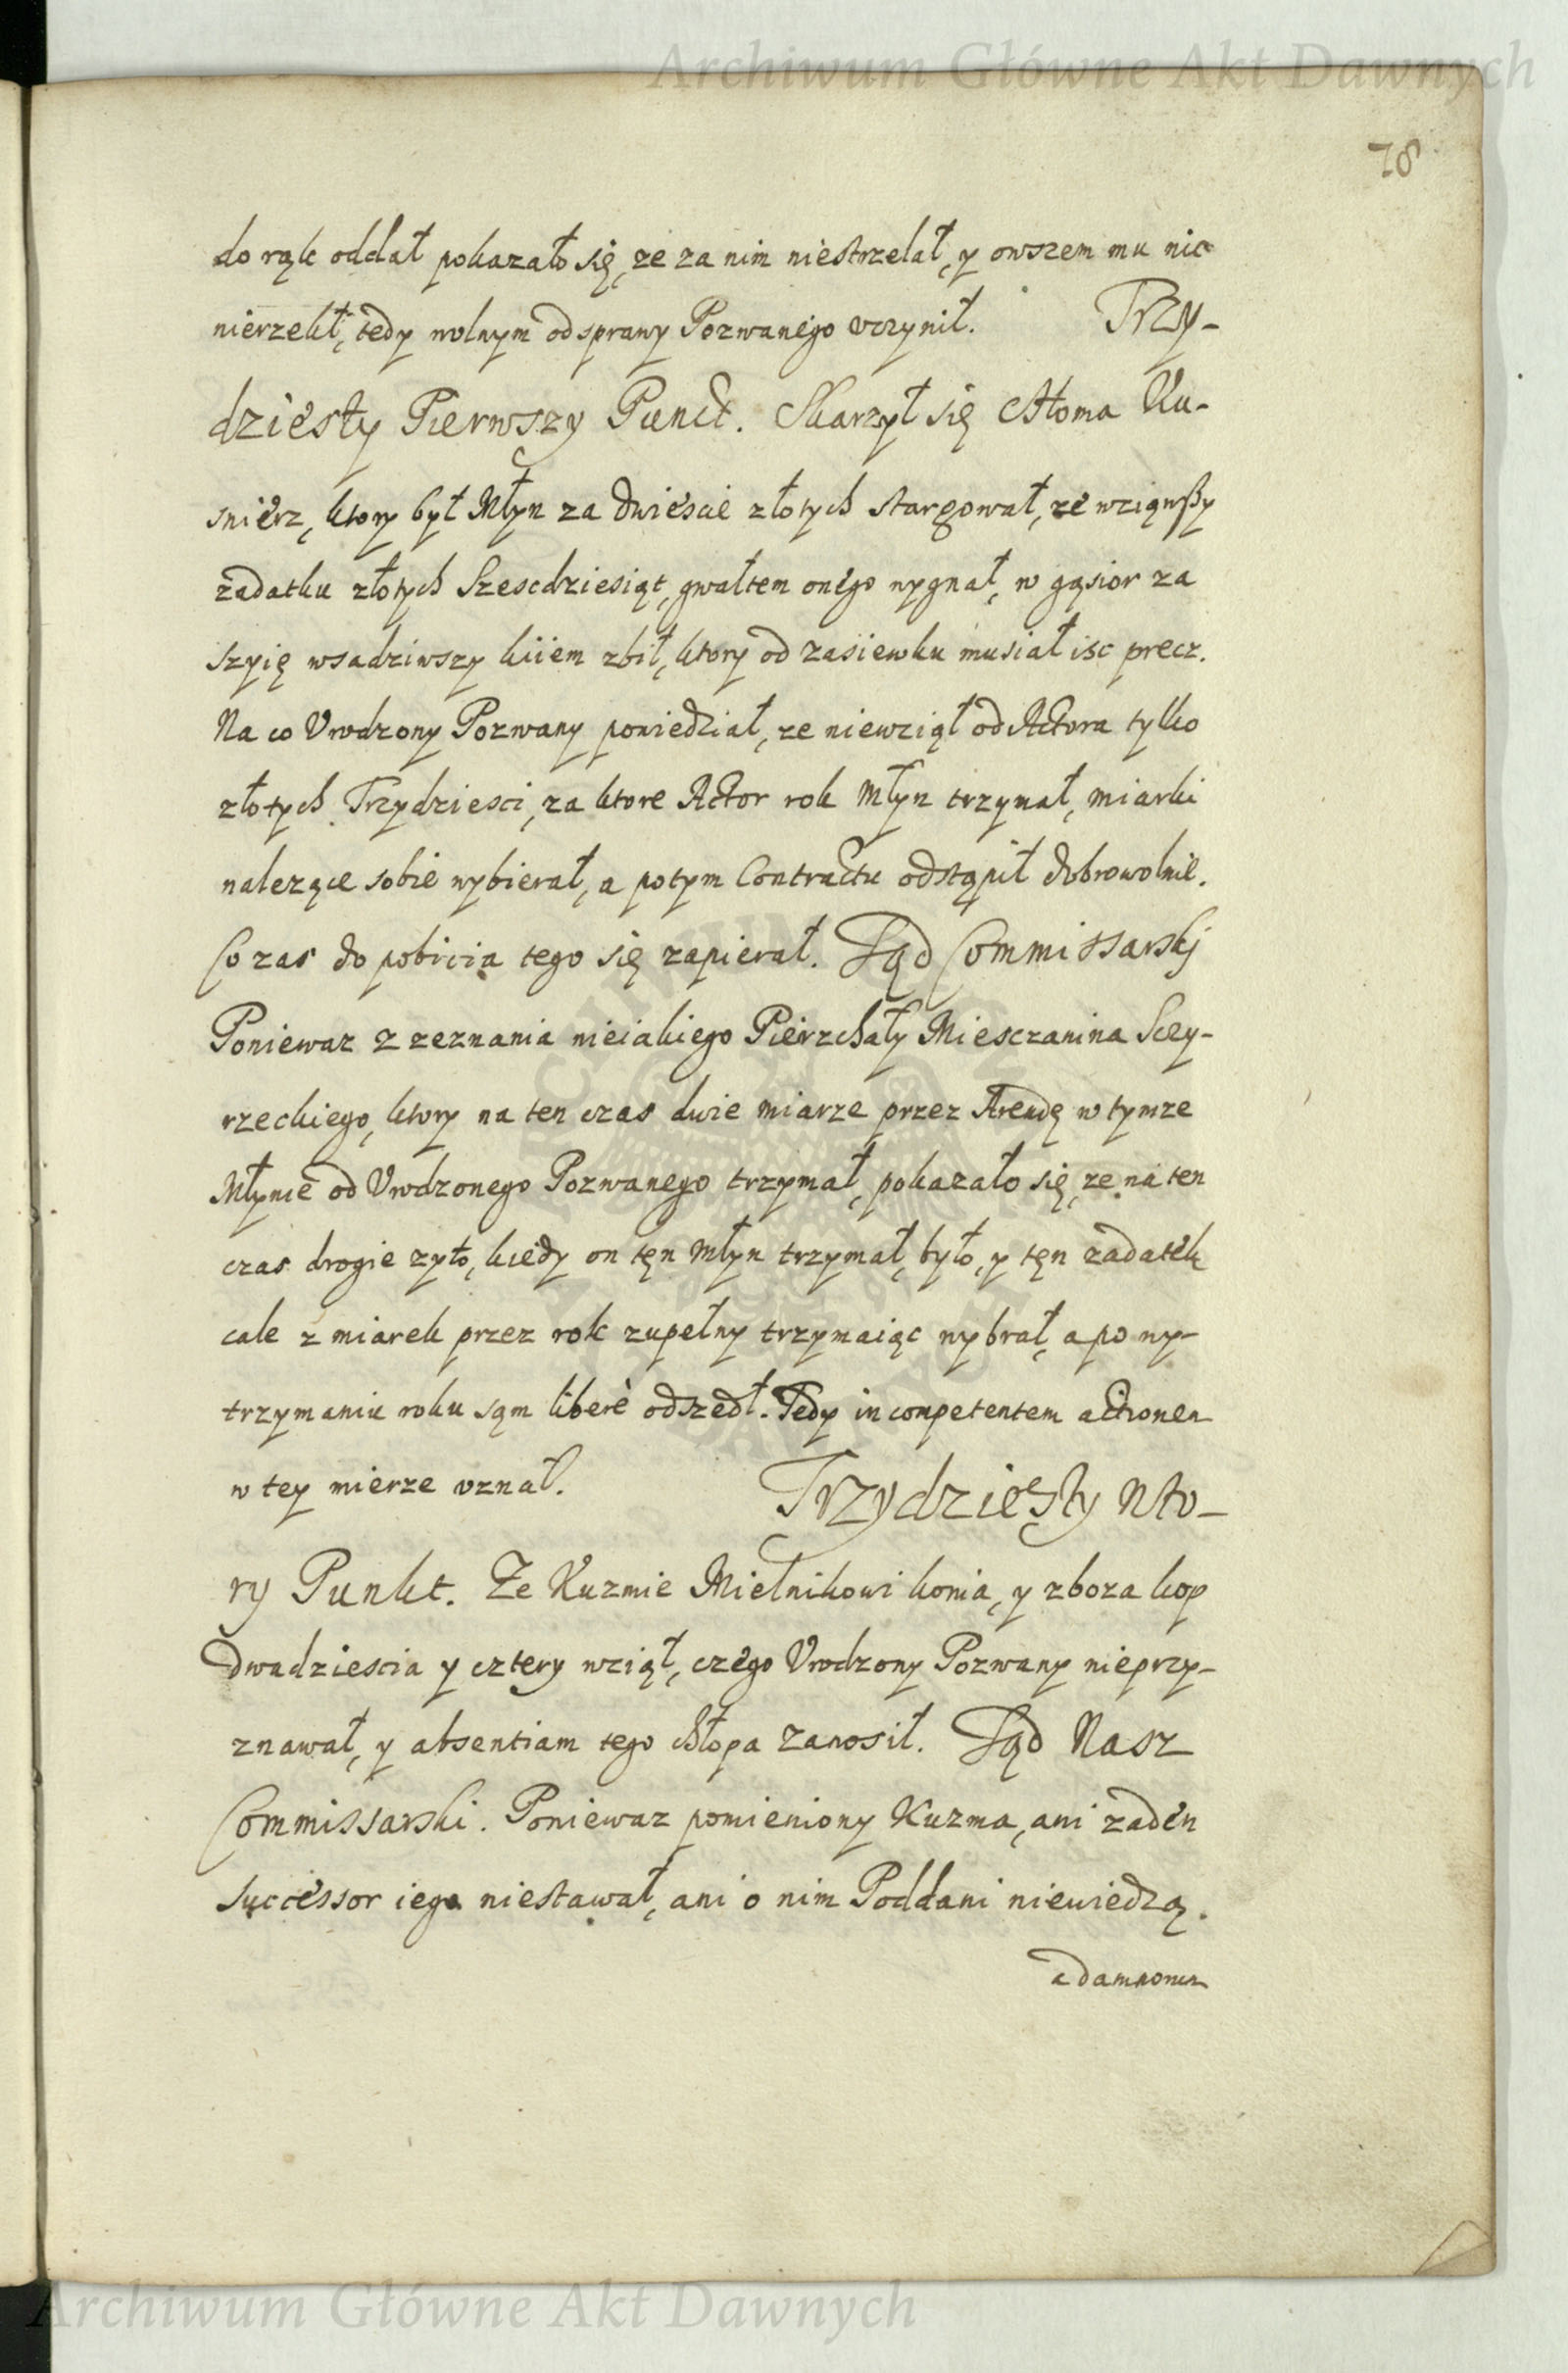 Archiwum Główne Akt Dawnych
78
do rąk oddał pokazało się, ze za nim niestrzelał, y owszem mu nic
nierzekł, tedy wolnym od sprawy Pozwanego vczynił. Trzy-
dziesty Pierwszy Punct. Skarzył się Choma Ku-
snierz, ktory był Młyn za dwiescie złotych stargował, ze wziąwszy
zadatku złotych Szescdziesiąt, gwałtem onego wygnał, w gąsior za
szyię wsadziwszy kiiem zbił, ktory od zasiewku musiał isc precz.
Na co Vrodzony Pozwany powiedział, ze niewziął od Actora tylko
złotych Trzydziesci, za ktore Actor rok Młyn trzymał, miarki
nalezące sobie wybierał, a potym Contractu odstąpił dobrowolnie.
Co zas do pobicia tego się zapierał. Sąd Commissarskj
Poniewaz z zeznania nieiakiego Pierzchały Miesczanina Scey-
rzeckiego, ktory na ten czas dwie miarze przez Arendę w tymze
Młynie od Vrodzonego Pozwanego trzymał, pokazało się, ze na ten
czas drogie zyto, kiedy on tęn Młyn trzymał, było, y tęn zadatek
cale z miarek przez rok zupełny trzymaiąc wybrał, a po wy-
trzymaniu roku sąm liberè odszedł. Tedy incompetentem actionem
w tey mierze vznał. Trzydziesty Wto-
ry Punkt. Ze Kuzmie Mielnikowi konia, y zboza kop
dwadziescia y cztery wziął, czego Vrodzony Pozwany nieprzy-
znawał, y absentiam tego chłopa zanosił. Sąd Nasz
Commissarski. Poniewaz pomieniony Kuzma, ani zaden
successor iego niestawał, ani o nim Poddani niewiedzą.
a damnoner
Archiwum Główne Akt Dawnych